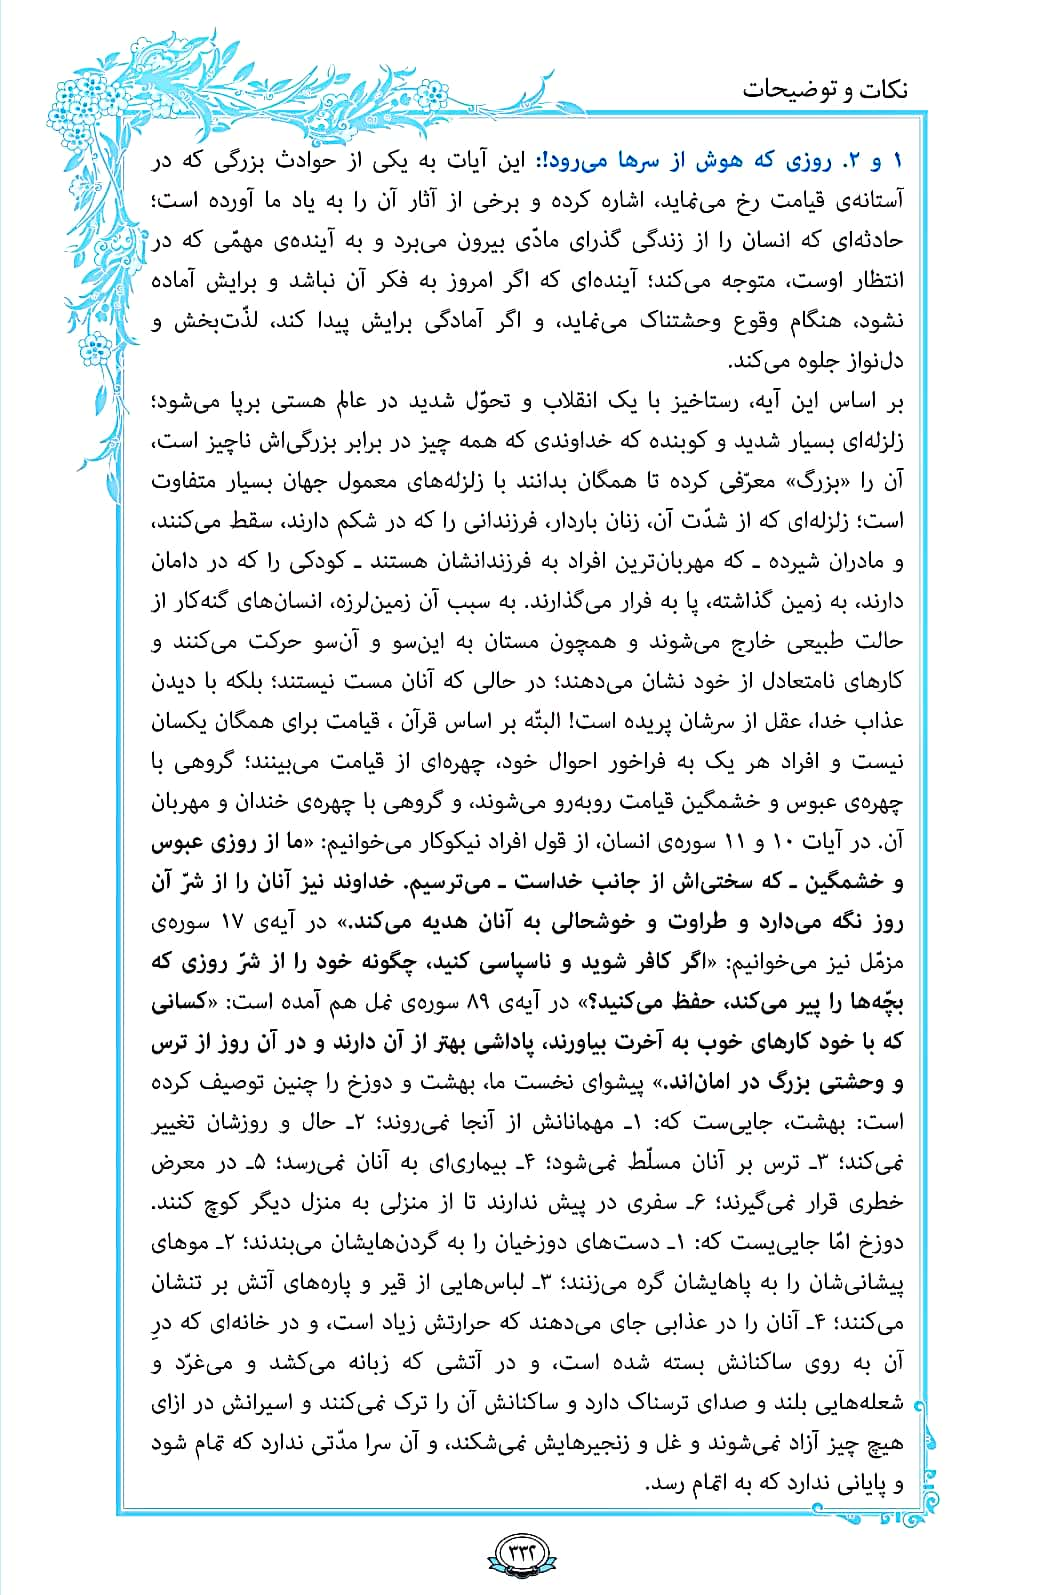 نکات و توضیحات
۱ و ۲. روزی که هوش از سرها می‌رود!: این آیات به یکی از حوادث بزرگی که در
آستانه‌ی قیامت رخ می‌نماید، اشاره کرده و برخی از آثار آن را به یاد ما آورده است؛
حادثه‌ای که انسان را از زندگی گذرای مادّی بیرون می‌برد و به آینده‌ی مهمّی که در
انتظار اوست، متوجه می‌کند؛ آینده‌ای که اگر امروز به فکر آن نباشد و برایش آماده
نشود، هنگام وقوع وحشتناک می‌نماید، و اگر آمادگی برایش پیدا کند، لذّت‌بخش و
دل‌نواز جلوه می‌کند.
بر اساس این آیه، رستاخیز با یک انقلاب و تحوّل شدید در عالم هستی برپا می‌شود؛
زلزله‌ای بسیار شدید و کوبنده که خداوندی که همه چیز در برابر بزرگی‌اش ناچیز است،
آن را «بزرگ» معرّفی کرده تا همگان بدانند با زلزله‌های معمول جهان بسیار متفاوت
است؛ زلزله‌ای که از شدّت آن، زنان باردار، فرزندانی را که در شکم دارند، سقط می‌کنند،
و مادران شیرده ـ که مهربان‌ترین افراد به فرزندانشان هستند ـ کودکی را که در دامان
دارند، به زمین گذاشته، پا به فرار می‌گذارند. به سبب آن زمین‌لرزه، انسان‌های گنه‌کار از
حالت طبیعی خارج می‌شوند و همچون مستان به این‌سو و آن‌سو حرکت می‌کنند و
کارهای نامتعادل از خود نشان می‌دهند؛ در حالی که آنان مست نیستند؛ بلکه با دیدن
عذاب خدا، عقل از سرشان پریده است! البتّه بر اساس قرآن ، قیامت برای همگان یکسان
نیست و افراد هر یک به فراخور احوال خود، چهره‌ای از قیامت می‌بینند؛ گروهی با
چهره‌ی عبوس و خشمگین قیامت روبه‌رو می‌شوند، و گروهی با چهره‌ی خندان و مهربان
آن. در آیات ۱۰ و ۱۱ سوره‌ی انسان، از قول افراد نیکوکار می‌خوانیم: «ما از روزی عبوس
و خشمگین ـ که سختی‌اش از جانب خداست ـ می‌ترسیم. خداوند نیز آنان را از شرّ آن
روز نگه می‌دارد و طراوت و خوشحالی به آنان هدیه می‌کند.» در آیه‌ی ۱۷ سوره‌ی
مزمّل نیز می‌خوانیم: «اگر کافر شوید و ناسپاسی کنید، چگونه خود را از شرّ روزی که
بچّه‌ها را پیر می‌کند، حفظ می‌کنید؟» در آیه‌ی ۸۹ سوره‌ی نمل هم آمده است: «کسانی
که با خود کارهای خوب به آخرت بیاورند، پاداشی بهتر از آن دارند و در آن روز از ترس
و وحشتی بزرگ در امان‌اند.» پیشوای نخست ما، بهشت و دوزخ را چنین توصیف کرده
است: بهشت، جایی‌ست که: ۱ـ مهمانانش از آنجا نمی‌روند؛ ۲ـ حال و روزشان تغییر
نمی‌کند؛ ۳ـ ترس بر آنان مسلّط نمی‌شود؛ ۴ـ بیماری‌ای به آنان نمی‌رسد؛ ۵ـ در معرض
خطری قرار نمی‌گیرند؛ ۶ـ سفری در پیش ندارند تا از منزلی به منزل دیگر کوچ کنند.
دوزخ امّا جایی‌یست که: ۱ـ دست‌های دوزخیان را به گردن‌هایشان می‌بندند؛ ۲ـ موهای
پیشانی‌شان را به پاهایشان گره می‌زنند؛ ۳ـ لباس‌هایی از قیر و پاره‌های آتش بر تنشان
می‌کنند؛ ۴ـ آنان را در عذابی جای می‌دهند که حرارتش زیاد است، و در خانه‌ای که درِ
آن به روی ساکنانش بسته شده است، و در آتشی که زبانه می‌کشد و می‌غرّد و
شعله‌هایی بلند و صدای ترسناک دارد و ساکنانش آن را ترک نمی‌کنند و اسیرانش در ازای
هیچ چیز آزاد نمی‌شوند و غل و زنجیرهایش نمی‌شکند، و آن سرا مدّتی ندارد که تمام شود
و پایانی ندارد که به اتمام رسد.
۳۳۲